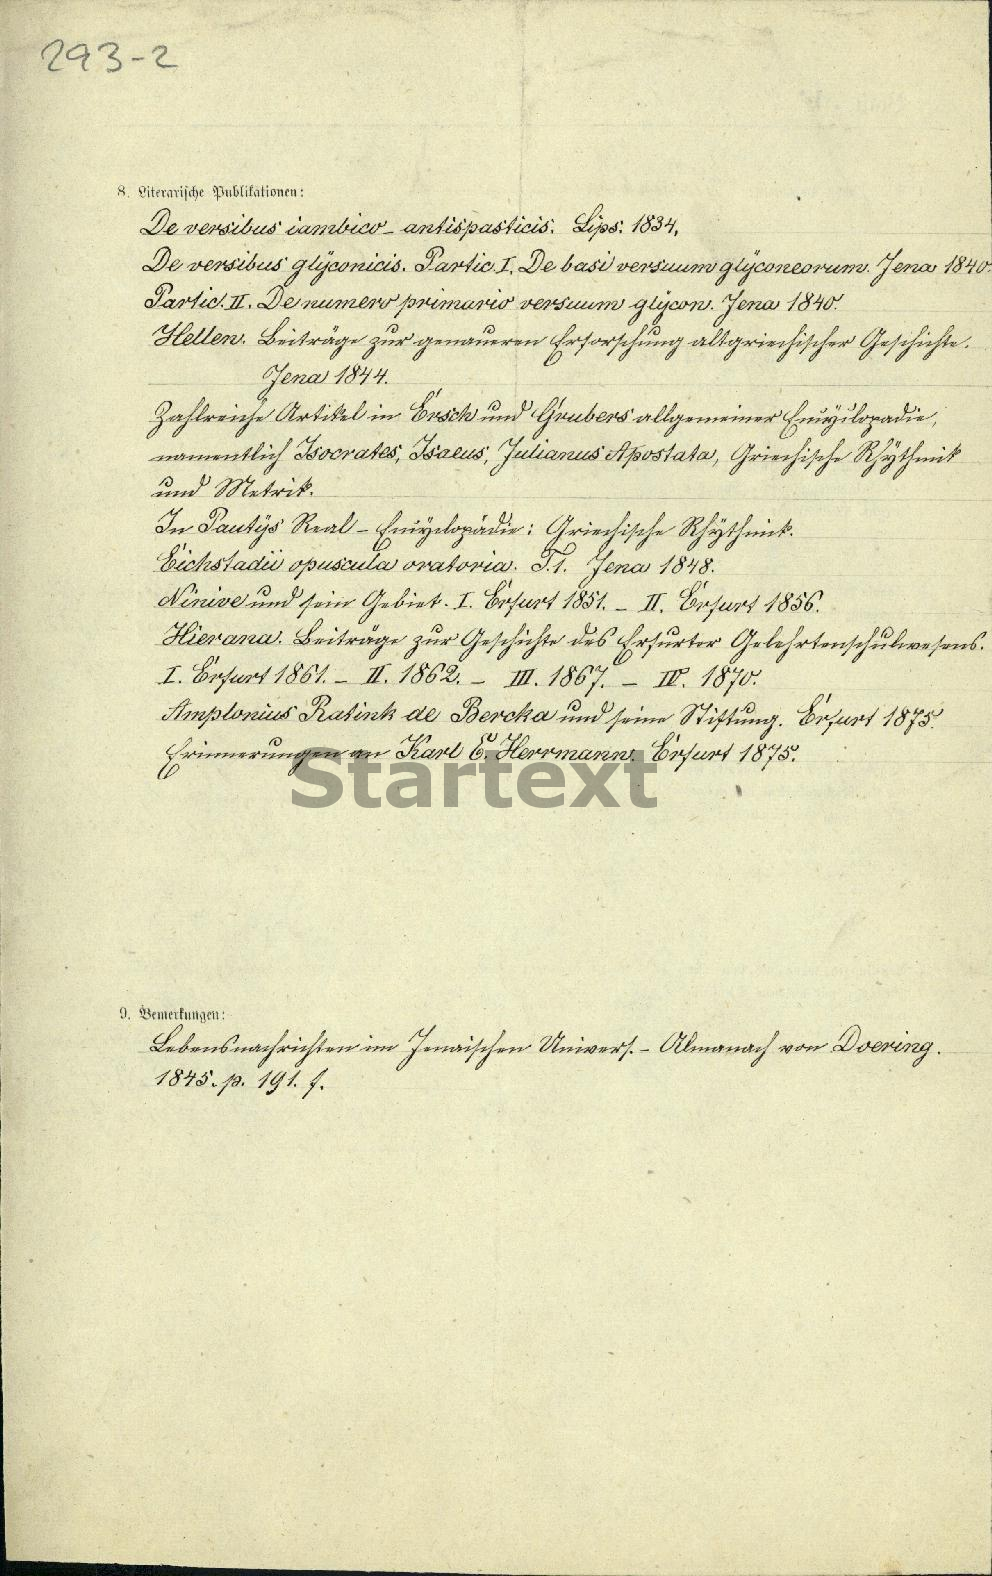 293-2
8. Literarische Publikationen:
De versibus iambico-antispasticis. Lips. 1834.
De versibus glyconicis. Partic. I. De basi versuum glyconeorum. Jena 1840.
Partic. II. De numero primario versuum glycon. Jena 1840.
Hellen. Beiträge zur genaueren Erforschung altgriechischer Geschichte.
Jena 1844.
Zahlreiche Artikel in Ersch und Grubers allgemeiner Encyclopädie,
namentlich Isocrates, Isaeus, Julianus Apostata, Griechische Rhythmik
und Metrik.
In Paulys Real-Encyclopädie: Griechische Rhythmik.
Eichstadii opuscula oratoria. T.1. Jena 1848.
Ninive und sein Gebiet. I. Erfurt 1851. – II. Erfurt 1856.
Hierana. Beiträge zur Geschichte des Erfurter Gelehrtenschulwesens.
I. Erfurt 1861. – II. 1862. – III. 1867. – IV. 1870.
Amplonius Ratink de Bercka und seine Stiftung. Erfurt 1875.
Erinnerungen an Karl E. Herrmann. Erfurt 1875.
Startext
9. Bemerkungen:
Lebensnachrichten im Jenaischen Univers.-Almanach von Doering.
1845. p. 191. f.